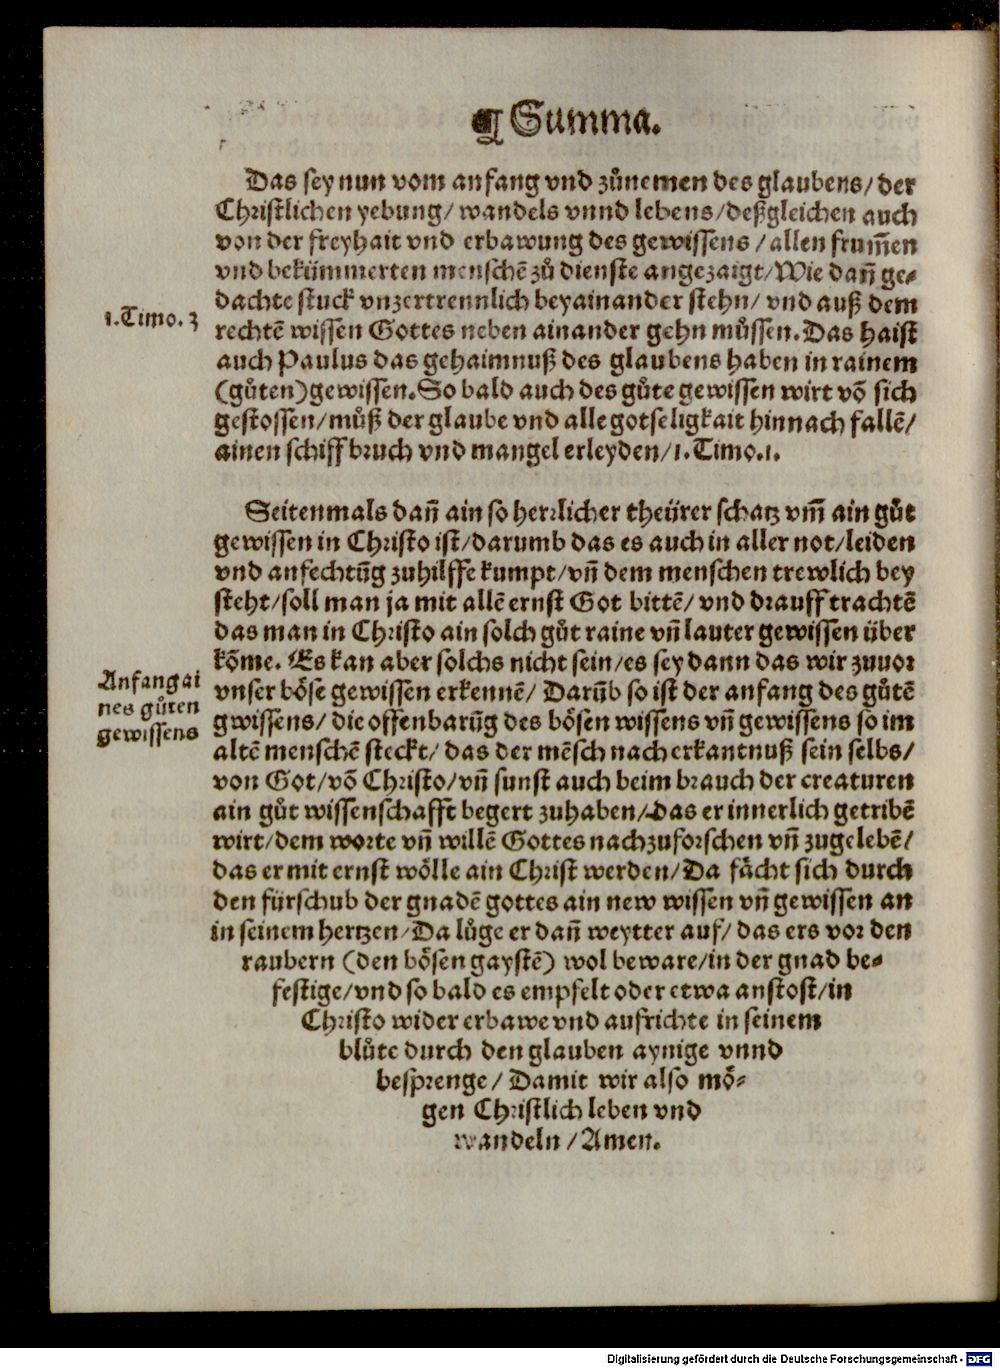 ¶ Summa.
Das sey nun vom anfang vnd zůnemen des glaubens/ der
Christlichen yebung/ wandels vnnd lebens/ deßgleichen auch
von der freyhait vnd erbawung des gewissens / allen frum̃en
vnd bekümmerten menschẽ zů dienste angezaigt/ Wie dañ ge-
dachte stuck vnzertrennlich beyainander stehn/ vnd auß dem
1. Timo. 3
rechtẽ wissen Gottes neben ainander gehn můssen. Das haist
auch Paulus das gehaimnuß des glaubens haben in rainem
(gůten) gewissen. So bald auch des gůte gewissen wirt võ sich
gestossen/ můß der glaube vnd alle gotseligkait hinnach fallẽ/
ainen schiffbruch vnd mangel erleyden/ 1. Timo. 1.
Seitenmals dañ ain so herrlicher theürer schatz vm̃ ain gůt
gewissen in Christo ist/ darumb das es auch in aller not/ leiden
vnd anfechtũg zuhilffe kumpt/ vñ dem menschen trewlich bey
steht/ soll man ja mit allẽ ernst Got bittẽ/ vnd drauff trachtẽ
das man in Christo ain solch gůt raine vñ lauter gewissen über
kõme. Es kan aber solchs nicht sein/ es sey dann das wir zuuor
Anfang ai
nes gůten
gewissens
vnser böse gewissen erkennẽ/ Darũb so ist der anfang des gůtẽ
gwissens/ die offenbarũg des bösen wissens vñ gewissens so im
altẽ menschẽ steckt/ das der mẽsch nach erkantnuß sein selbs/
von Got/ võ Christo/ vñ sunst auch beim brauch der creaturen
ain gůt wissenschafft begert zuhaben/ das er innerlich getribẽ
wirt/ dem worte vñ willẽ Gottes nachzuforschen vñ zugelebẽ/
das er mit ernst wölle ain Christ werden/ Da fåcht sich durch
den fürschub der gnadẽ gottes ain new wissen vñ gewissen an
in seinem hertzen/ Da lůge er dañ weytter auf/ das ers vor den
raubern (den bösen gaystẽ) wol beware/ in der gnad be-
festige/ vnd so bald es empfelt oder etwa anstost/ in
Christo wider erbawe vnd aufrichte in seinem
blůte durch den glauben aynige vnnd
besprenge/ Damit wir also mö-
gen Christlich leben vnd
wandeln / Amen.
Digitalisierung gefördert durch die Deutsche Forschungsgemeinschaft - DFG